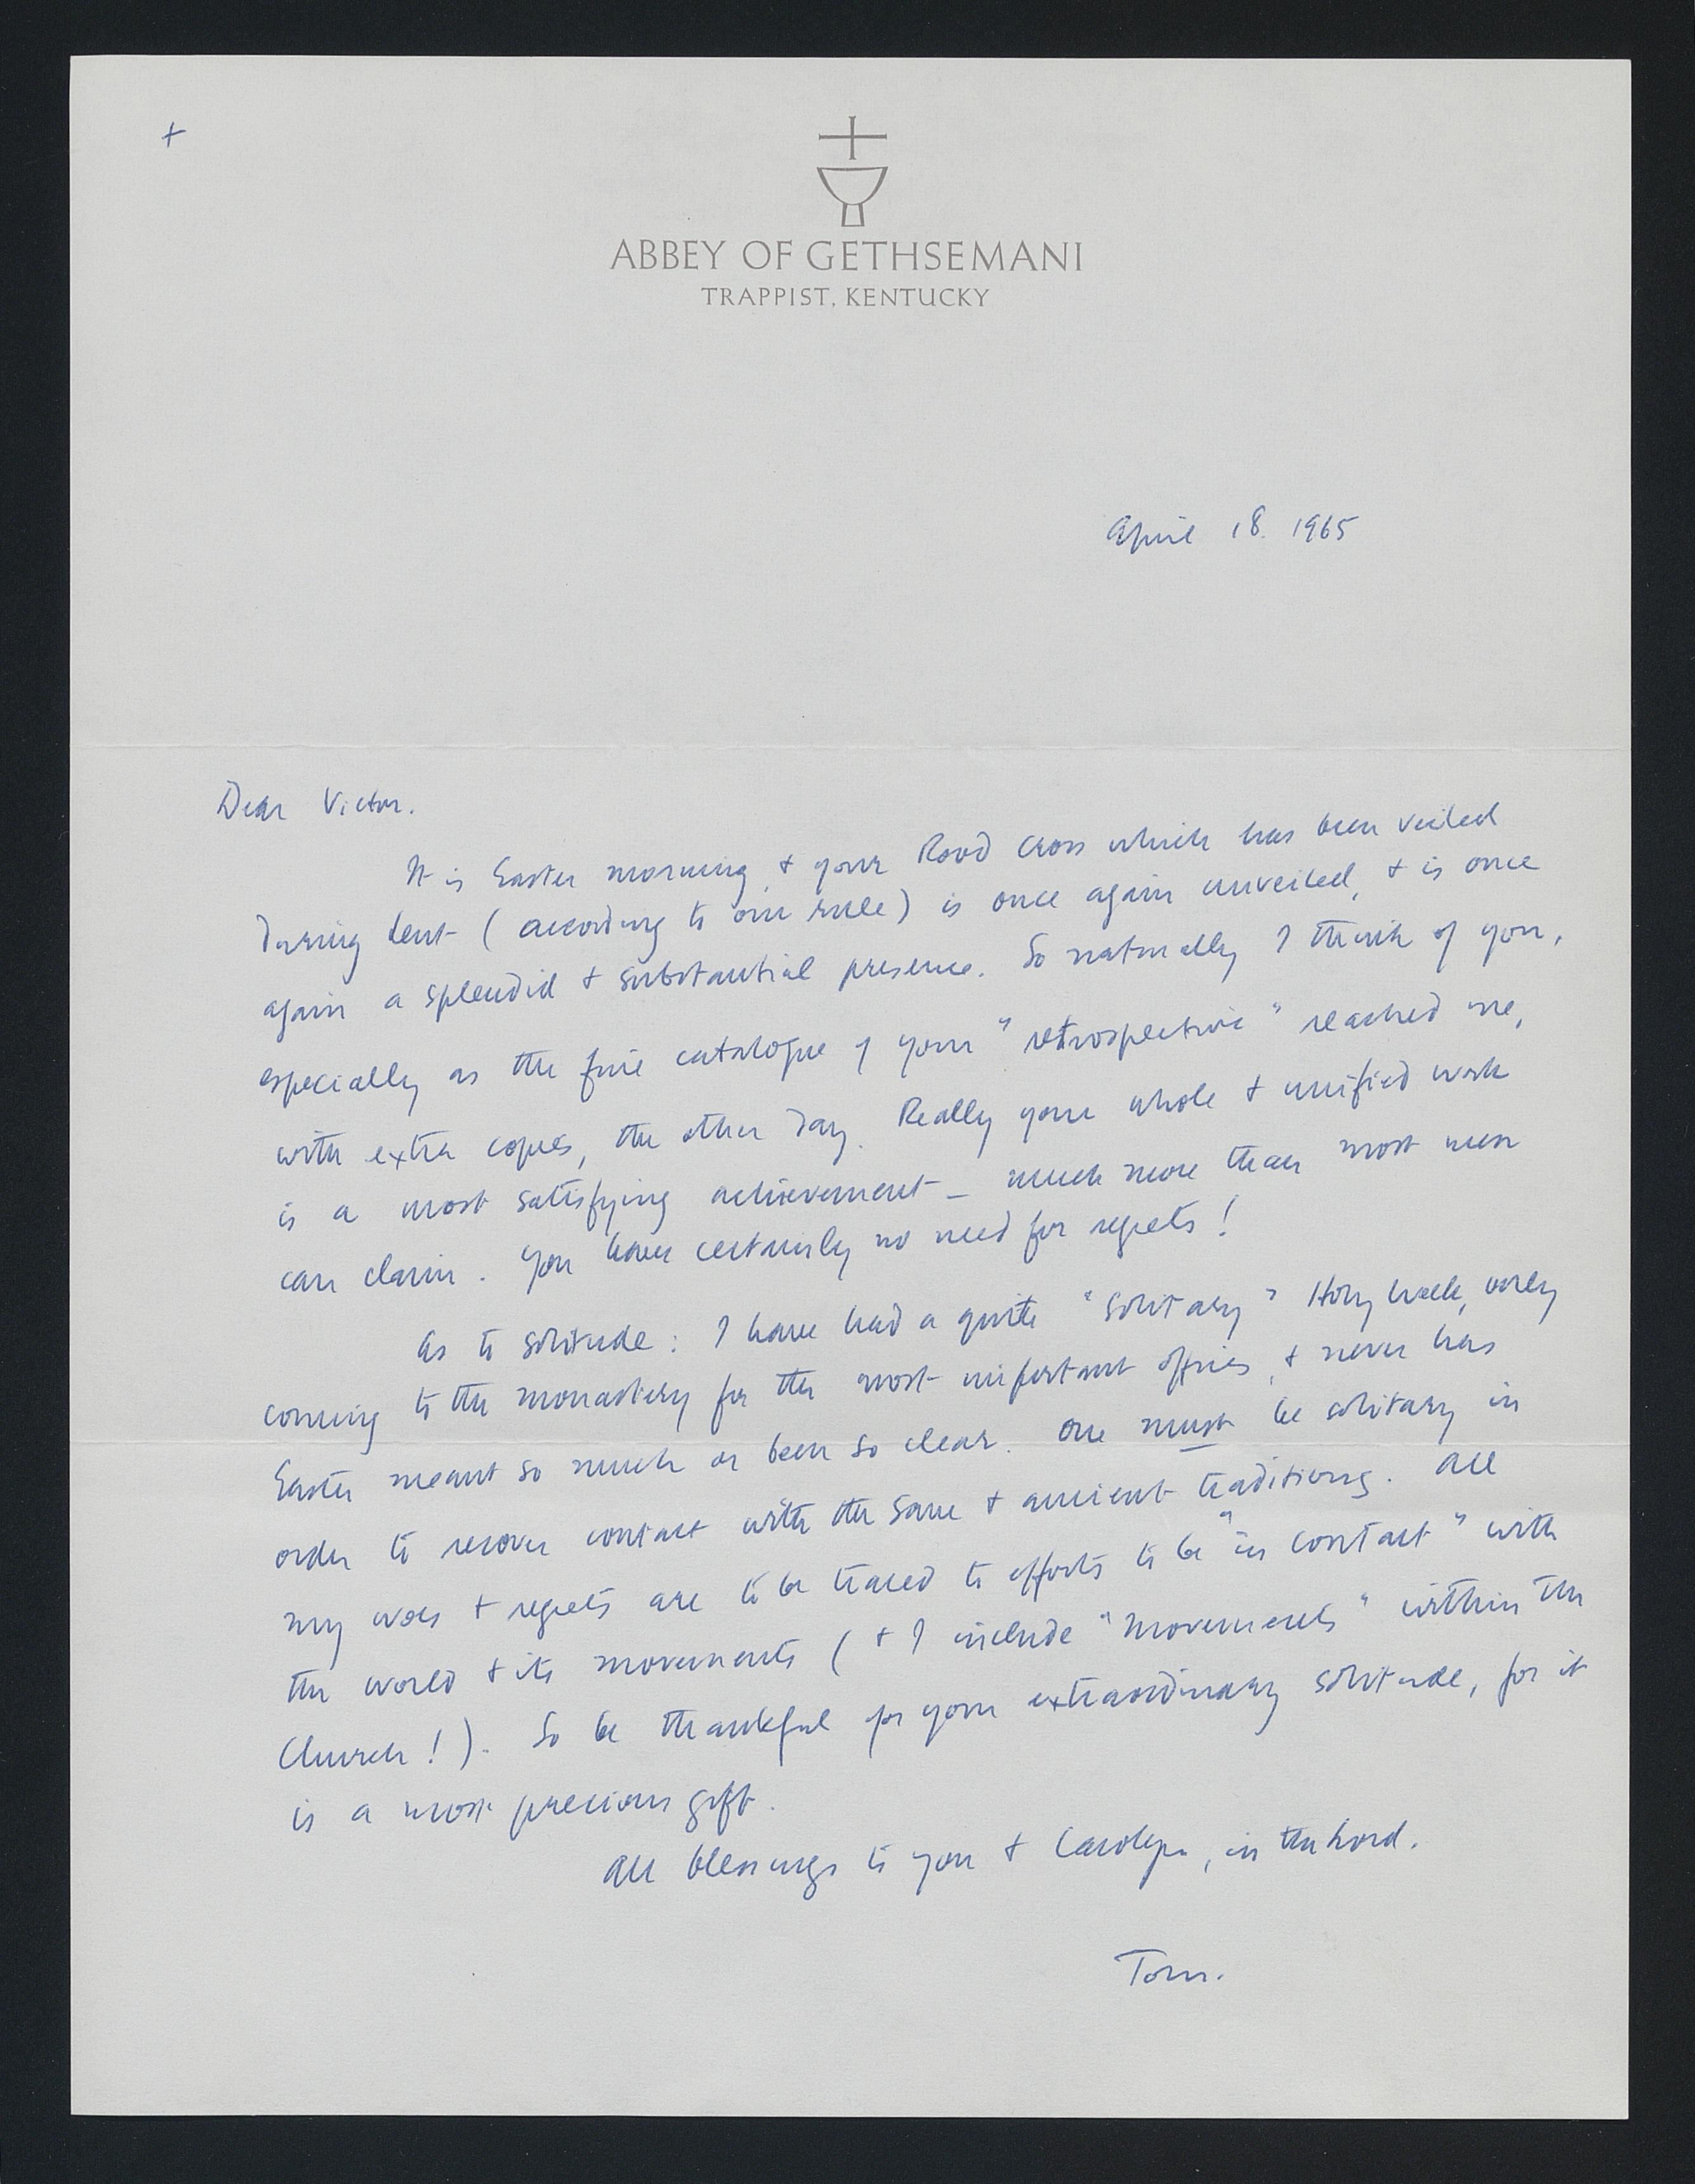 +
ABBEY OF GETHSEMANI
TRAPPIST, KENTUCKY
April 18. 1965
Dear Victor.
It is Easter morning, & your Rood Cross which has been veiled
during Lent (according to our rule) is once again unveiled, & is once
again a splendid & substantial presence. So naturally I think of you,
especially as the fine catalogue of your "retrospective" reached me,
with extra copies, the other day. Really your whole & unified work
is a most satisfying achievement - much more than most men
can claim. You have certainly no need for regrets!
As to solitude: I have had a quite "solitary" Holy Week, only
coming to the monastery for the most important offices, & never has
Easter meant so much or been so clear. One must be solitary in
order to recover contact with the sane & ancient traditions. All
my woes & regrets are to be traced to efforts to be "in contact" with
the world & its movements (& I include "movements" within the
Church!). So be thankful for your extraordinary solitude, for it
is a most precious gift.
All blessings to you & Carolyn, in the Lord.
Tom.